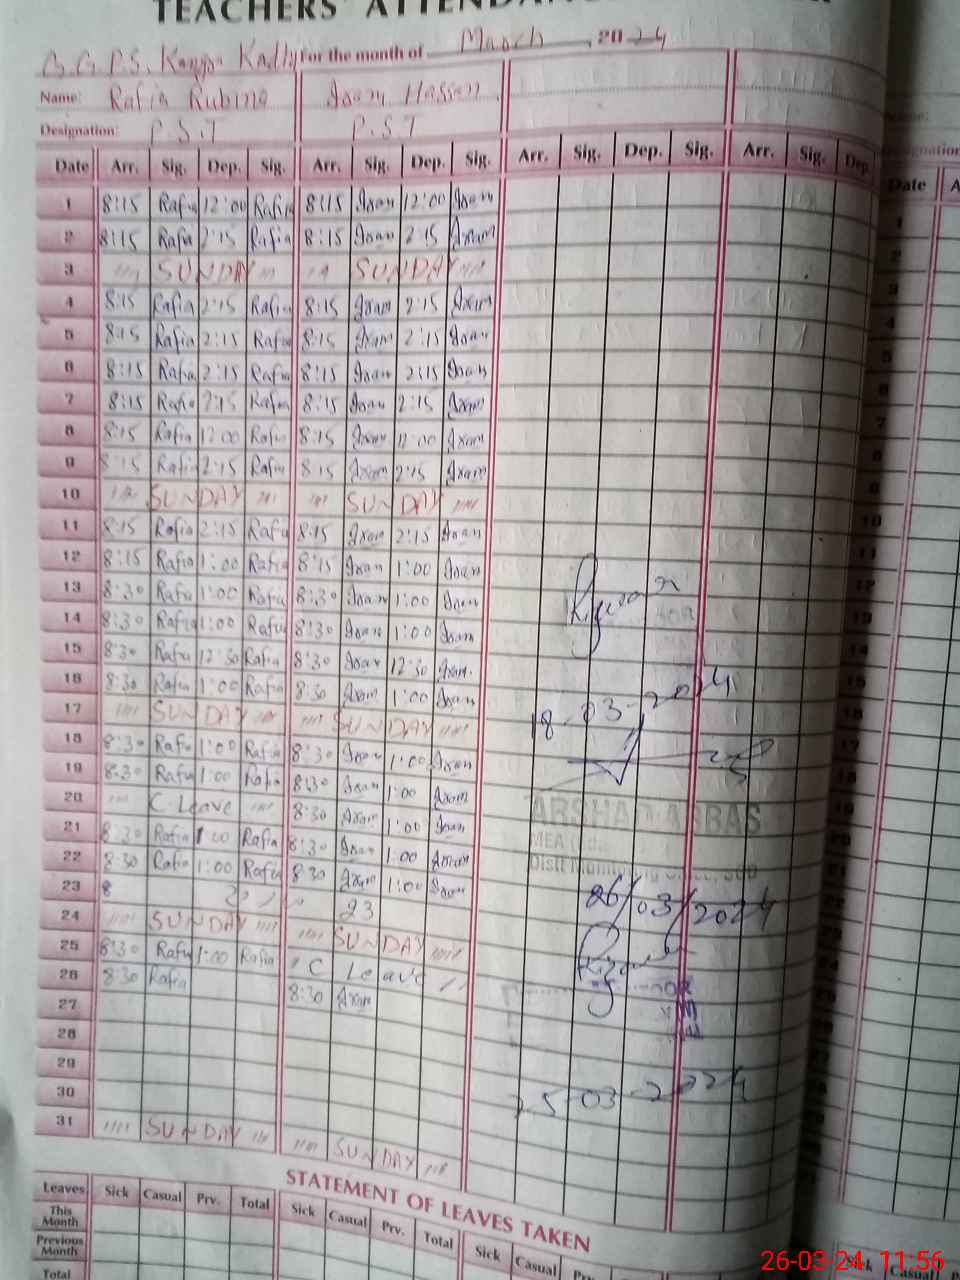 TEACHERS' ATTENDANCE
G.G.P.S. For the month of March, 2024
Name: Rafia Rubina Iram Hassan
Designation: P.S.T P.S.T
Date Arr. Sig. Dep. Sig. Arr. Sig. Dep. Sig. Arr. Sig. Dep. Sig. Arr. Sig. Dep
1 8:15 Rafia 12:00 Rafia 8:15 Iram 12:00 Iram
2 8:15 Rafia 2:15 Rafia 8:15 Iram 2:15 Iram
3 SUNDAY SUNDAY
4 8:15 Rafia 2:15 Rafia 8:15 Iram 2:15 Iram
5 8:15 Rafia 2:15 Rafia 8:15 Iram 2:15 Iram
6 8:15 Rafia 2:15 Rafia 8:15 Iram 2:15 Iram
7 8:15 Rafia 2:15 Rafia 8:15 Iram 2:15 Iram
8 8:15 Rafia 12:00 Rafia 8:15 Iram 12:00 Iram
9 8:15 Rafia 2:15 Rafia 8:15 Iram 2:15 Iram
10 SUNDAY SUNDAY
11 8:15 Rafia 2:15 Rafia 8:15 Iram 2:15 Iram
12 8:15 Rafia 1:00 Rafia 8:15 Iram 1:00 Iram
13 8:30 Rafia 1:00 Rafia 8:30 Iram 1:00 Iram
14 8:30 Rafia 1:00 Rafia 8:30 Iram 1:00 Iram
15 8:30 Rafia 12:30 Rafia 8:30 Iram 12:30 Iram
16 8:30 Rafia 1:00 Rafia 8:30 Iram 1:00 Iram
17 SUNDAY SUNDAY
18-03-2024
18 8:30 Rafia 1:00 Rafia 8:30 Iram 1:00 Iram
19 8:30 Rafia 1:00 Rafia 8:30 Iram 1:00 Iram
20 C.Leave 8:30 Iram 1:00 Iram
ARSHAD ABBAS
MEA
21 8:30 Rafia 1:00 Rafia 8:30 Iram 1:00 Iram
22 8:30 Rafia 1:00 Rafia 8:30 Iram 1:00 Iram
23 8 23
26/03/2024
24 SUNDAY SUNDAY
25 8:30 Rafia 1:00 Rafia C Leave
26 8:30 Rafia 8:30 Iram
27
28
29
30
25-03-2024
31 SUNDAY SUNDAY
STATEMENT OF LEAVES TAKEN
Leaves Sick Casual Prv. Total Sick Casual Prv. Total Sick Casual
This Month
Previous Month
Total
26-03-24, 11:56